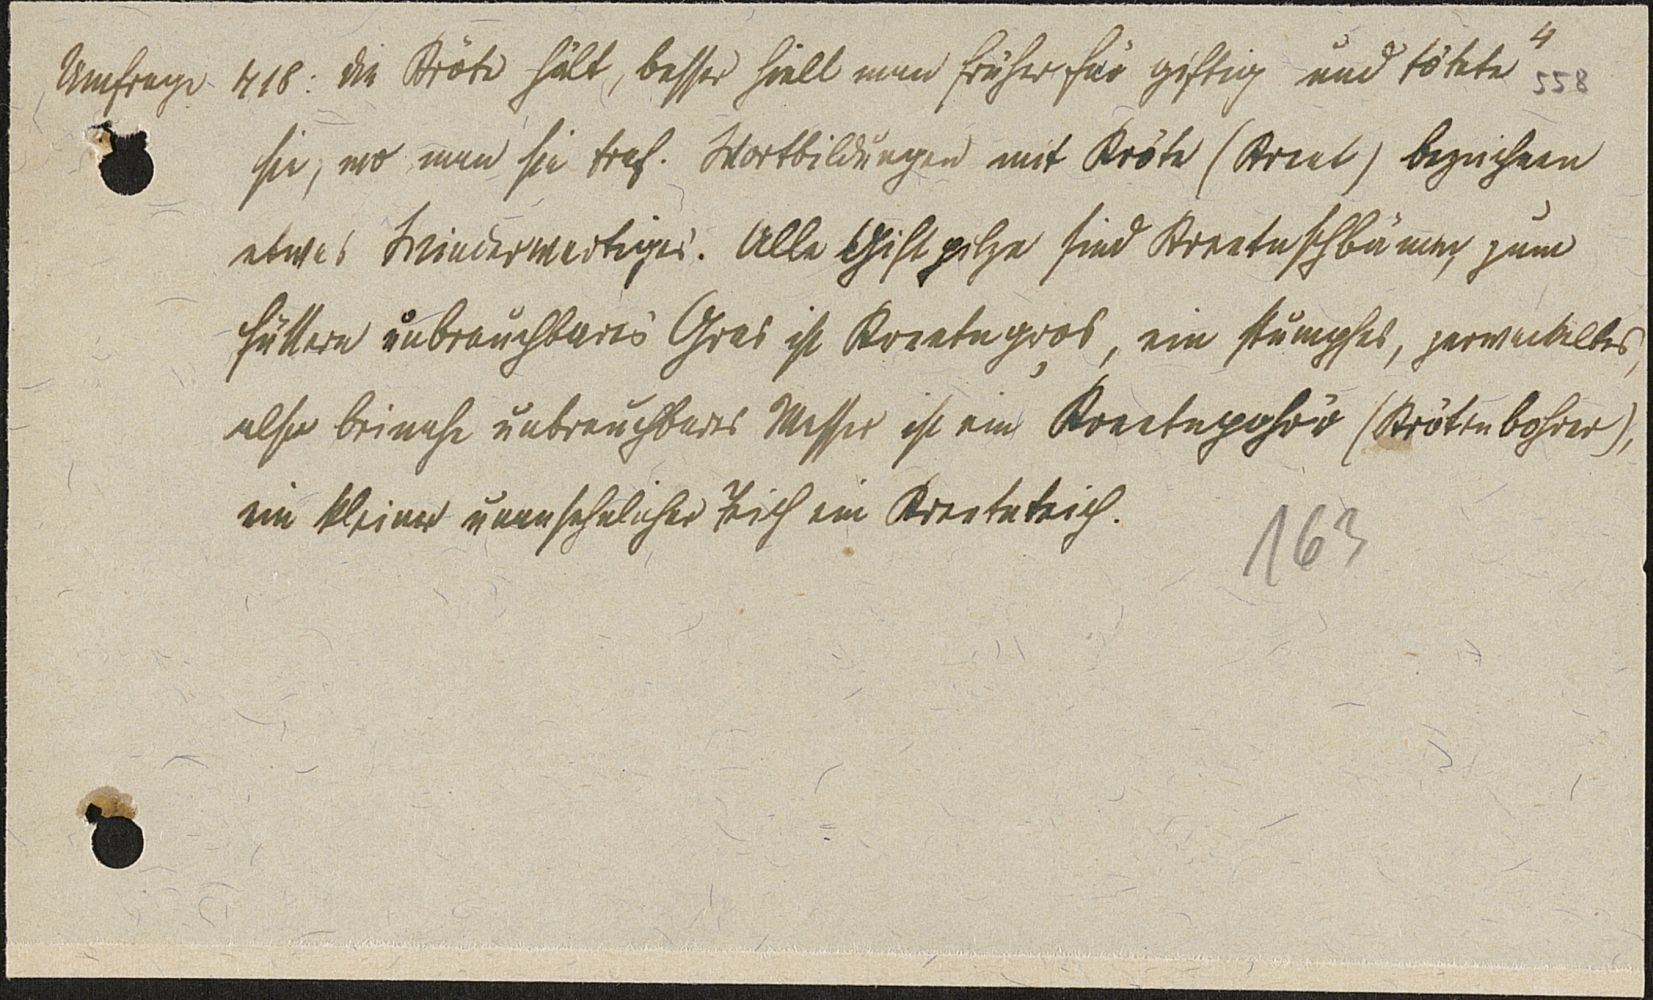 4
Umfrage 418: die Kröte hält, besser hielt man früher für giftig und tötete 558
sie, wo man sie traf. Wortbildungen mit Kröte (Kreet) bezeichnen
etwas Minderwertiges. Alle Giftpilze sind Kreetnschbämer, zum
Füttern unbrauchbares Gras ist Kreetngros, ein stumpfes, zerwackeltes,
also beinahe unbrauchbares Messer ist ein Kreetnpohrr (Krötenbohrer),
ein kleiner unansehnlicher Teich ein Kreetnteich.
163